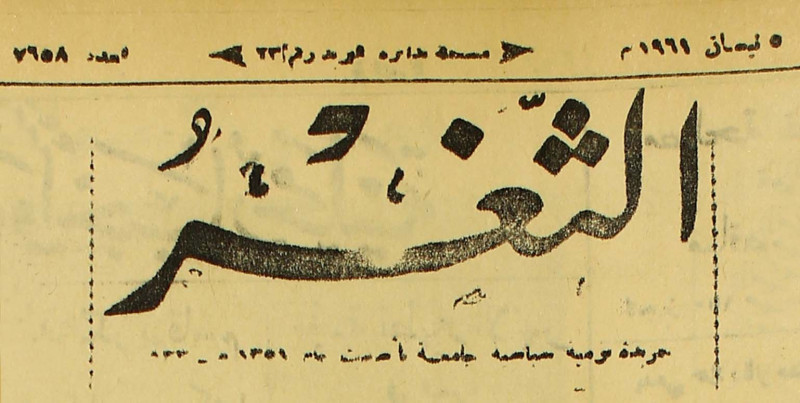 ٥ نيسان ١٩٦١ م مسجلة بدائرة البريد رقم ٢٣ العدد ٧٦٥٨
الثَّغْرُ
جريدة يومية سياسية جامعة تأسست عام ١٣٥١ هـ